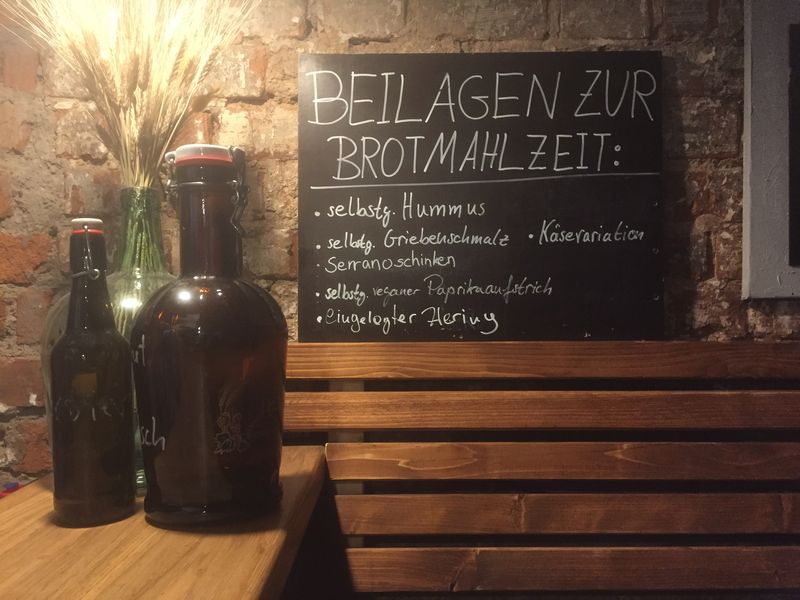 BEILAGEN ZUR
BROTMAHLZEIT:
• selbstg. Hummus
• selbstg. Griebenschmalz • Käsevariation
• Serranoschinken
• selbstg. veganer Paprikaaufstrich
• eingelegter Hering
sch